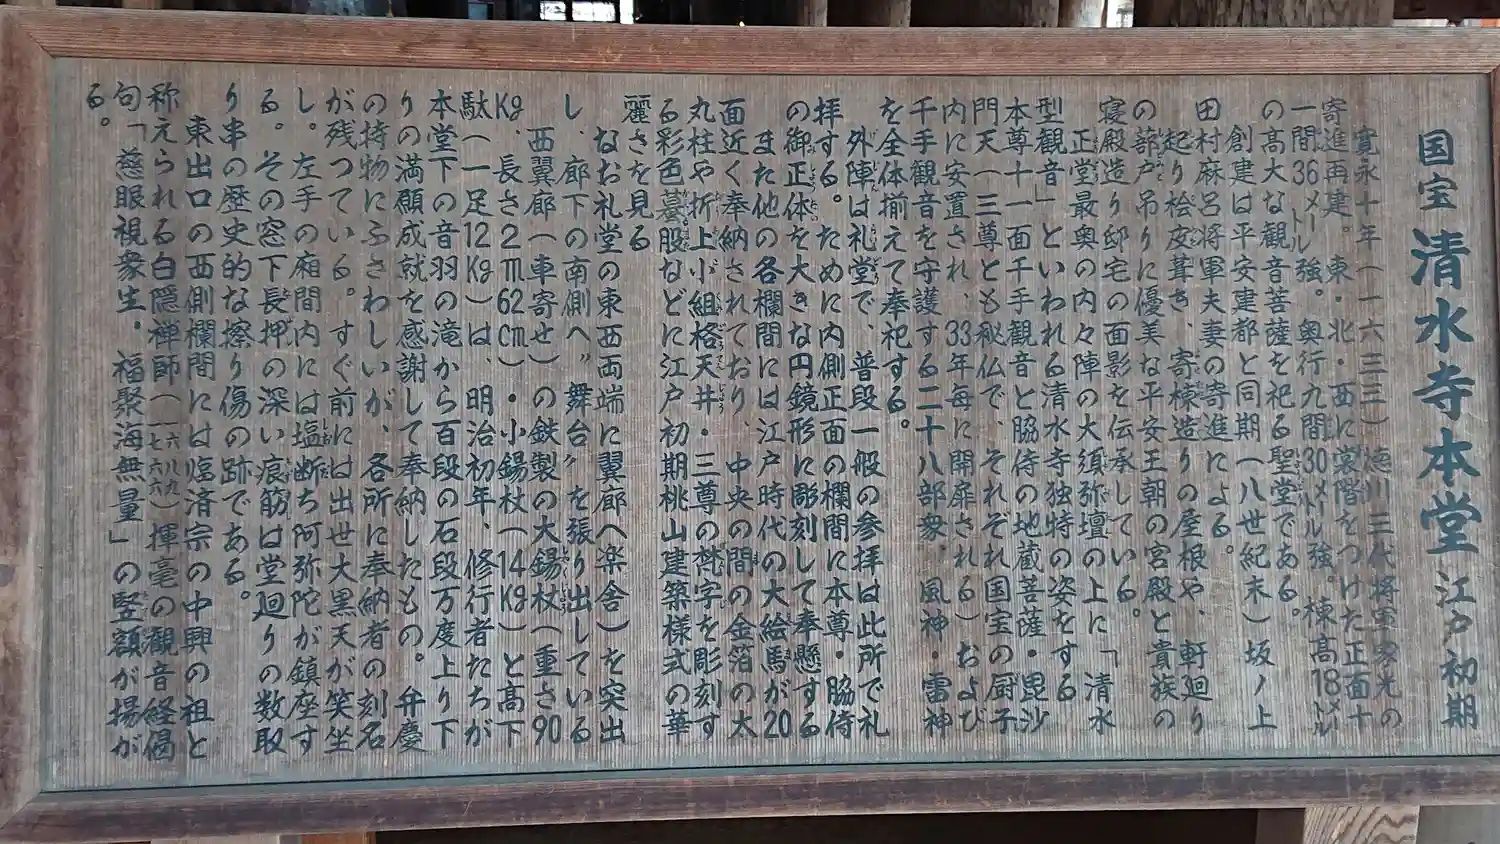 国宝 清水寺本堂 江戸初期
寛永十年（一六三三）徳川三代将軍家光の
寄進再建。東・北・西に裳階をつけた正面十
一間36メートル強。奥行九間30メートル強。棟高18メートル
の高大な観音菩薩を祀る聖堂である。
創建は平安建都と同期（八世紀末）坂ノ上
田村麻呂将軍夫妻の寄進による。
起り桧皮葺き、寄棟造りの屋根や、軒廻り
の蔀戸吊りに優美な平安王朝の宮殿と貴族の
寝殿造り邸宅の面影を伝承している。
正堂最奥の内々陣の大須弥壇の上に「清水
型観音」といわれる清水寺独特の姿をする
本尊十一面千手観音と脇侍の地蔵菩薩・毘沙
門天（三尊とも秘仏で、それぞれ国宝の厨子
内に安置され、33年毎に開扉される）および
千手観音を守護する二十八部衆・風神・雷神
を全体揃えて奉祀する。
外陣は礼堂で、普段一般の参拝は此所で礼
拝する。ために内側正面の欄間に本尊・脇侍
の御正体を大きな円鏡形に彫刻して奉懸する
また他の各欄間には江戸時代の大絵馬が20
面近く奉納されており、中央の間の金箔の太
丸柱や折上小組格天井・三尊の梵字を彫刻す
る彩色蟇股などに江戸初期桃山建築様式の華
麗さを見る
なお礼堂の東西両端に翼廊（楽舎）を突出
し、廊下の南側へ〝舞台〟を張り出している
西翼廊（車寄せ）の鉄製の大錫杖（重さ90
Kg、長さ2m62cm）・小錫杖（14Kg）と高下
駄（一足12Kg）は、明治初年、修行者たちが
本堂下の音羽の滝から百段の石段万度上り下
りの満願成就を感謝して奉納したもの。弁慶
の持物にふさわしいが、各所に奉納者の刻名
が残っている。すぐ前には出世大黒天が笑坐
し。左手の廂間内には塩断ち阿弥陀が鎮座す
る。その窓下長押の深い痕筋は堂廻りの数取
り串の歴史的な擦り傷の跡である。
東出口の西側欄間には臨済宗の中興の祖と
称えられる白隠禅師（一六八九一七六六）揮毫の観音経偈
句「慈眼視衆生・福聚海無量」の竪額が揚が
る。